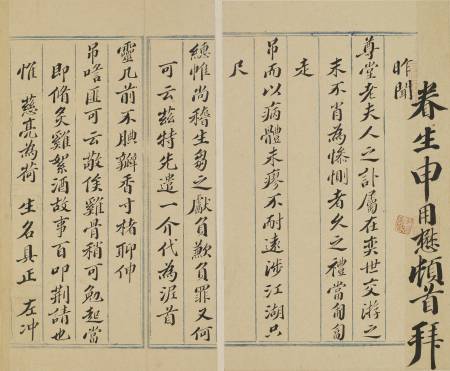 眷生申用懋頓首拜
昨聞
尊堂老夫人之訃屬在奕世交游之
末不肖為慘惻者久之禮當匍匐
走
弔而以病體未瘳不耐遠涉江湖只
尺
繐帷尚稽生芻之獻負歉負罪又何
可云茲特先遣一介代為泥首
靈几前不腆瓣香寸楮聊伸
弔唁匪可云敬俟雞骨稍可勉起當
即脩炙雞絮酒故事百叩荊請也
惟 慈亮為荷 生名具正 左冲